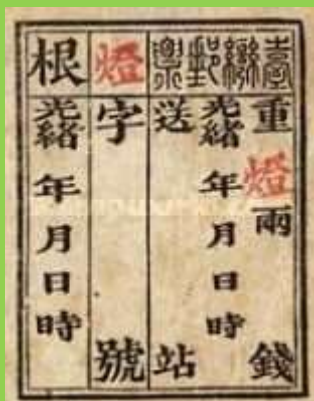 臺灣郵票
重燈兩錢
光緒年月日時
送站
燈字號
根
光緒年月日時